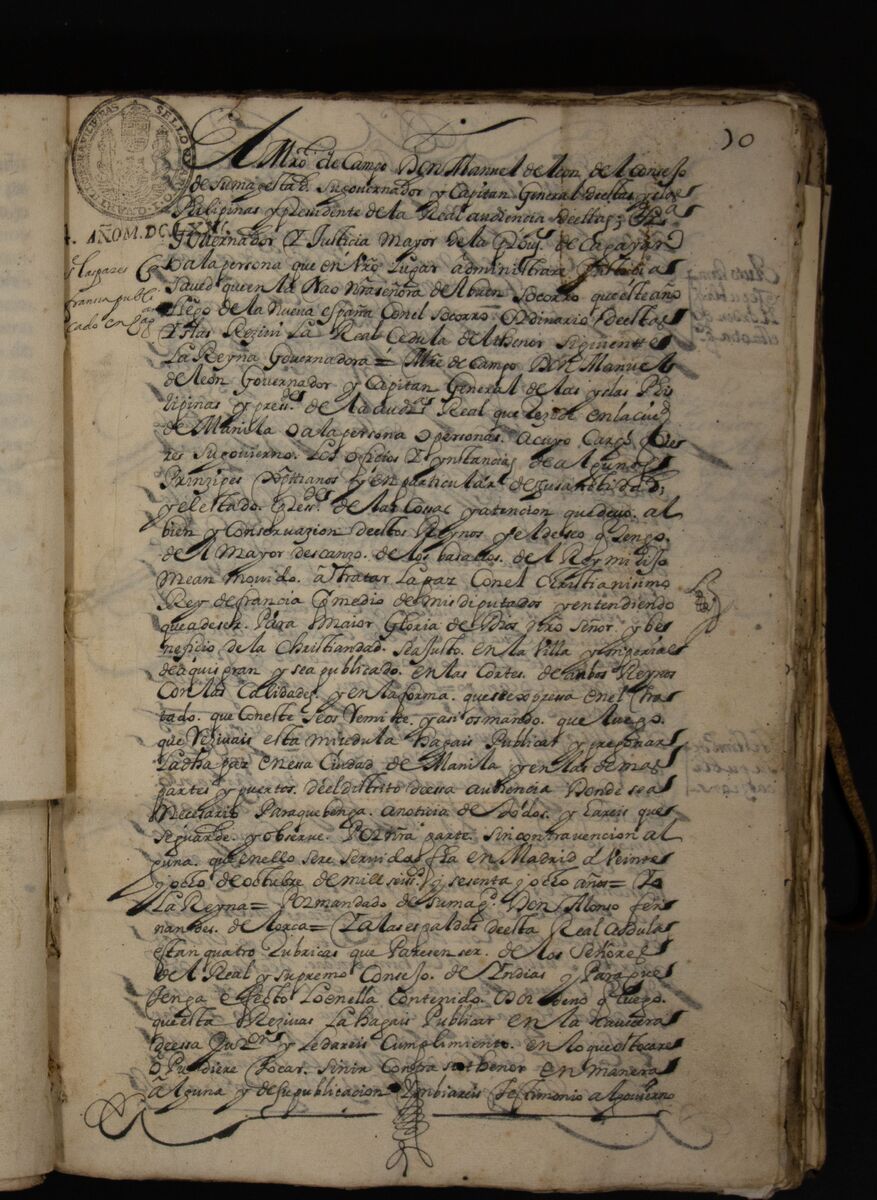 10
SELLO
FILIPINAS
AÑO M. DC. LXX
franca publi
cado en
El Mro de Campo Don Manuel de leon del Consejo
de su magestad. su governador y Capitan General de estas yslas
Philipinas y presidente de la Real audiencia de ellas
Governador y Justicia mayor de la de Cagayan
o a la persona que en Vro lugar administrare Justicia
saved que en la Nao Nra señora del buen Socorro que este año
llego de la nueva españa con el socorro ordinario de estas
yslas Rezivi La Real Cedula del thenor siguiente
La Reyna Governadora = Mre de Campo Don Manuel
de león Governador y Capitan General de las yslas Phi
lipinas y presste de la audª Real que rezide en la ciud
de Manila o a la persona o personas. a cuyo cargo
su govierno. Los oficios y ynstancias de algunos
Prinzipes xpttianos y en particular de su santidad,
y el estado de las Cosas y atencion que devo. al
bien y Conservazion de estos Reynos y el deseo q tengo.
del mayor descanzo. de los basallos. del Rey mi hijo
me an movido. a tratar La paz con el christianisimo
Rey de francia Por medio de mis diputados y entendiendo
que a de ser. para maior Gloria de Dios nro señor y be
neficio de la Christiandad. se ajusto. en la Villa ymperial
de aquisgran y sea publicado. en las Cortes. de ambos Reynos
con las Calidades. y en la forma. que se expresa en el tra
tado. que con este se os Remite. y asi os mando. que luego.
que Rezivais esta mi cedula hagais Publicar y pregonar
La dha paz en essa Ciudad de Manila y en las demas
partes y puertos. del distrito de essa audiencia donde sea
necesario para que benga. a noticia de todos. y Lareis que
se guarde. y observe. Por nra parte. sin contravencion al
guna. que en ello sere servida fha en Madrid a Veinte
y ocho de octubre de mill seiss y sesenta y ocho años = Yo
La Reyna = Por mandado de su magd. Don Alonso fer
nandes. de Lorca = Y a las espaldas de esta Real Cedula
estan quatro Rubricas que paresen ser. de los Señores
del Real y supremo Consejo. de Yndias y para que
tenga efecto Lo en ella contenido. ordeno q luego.
que esta Rezivas La hagais Publicar en la cavecera
de essa y Le dareis Cumplimiento. en lo que os tocare
o Pudiere tocar. sin ir contra su thenor en manera
alguna y de su publicacion Imbiareis testimonio al govierno